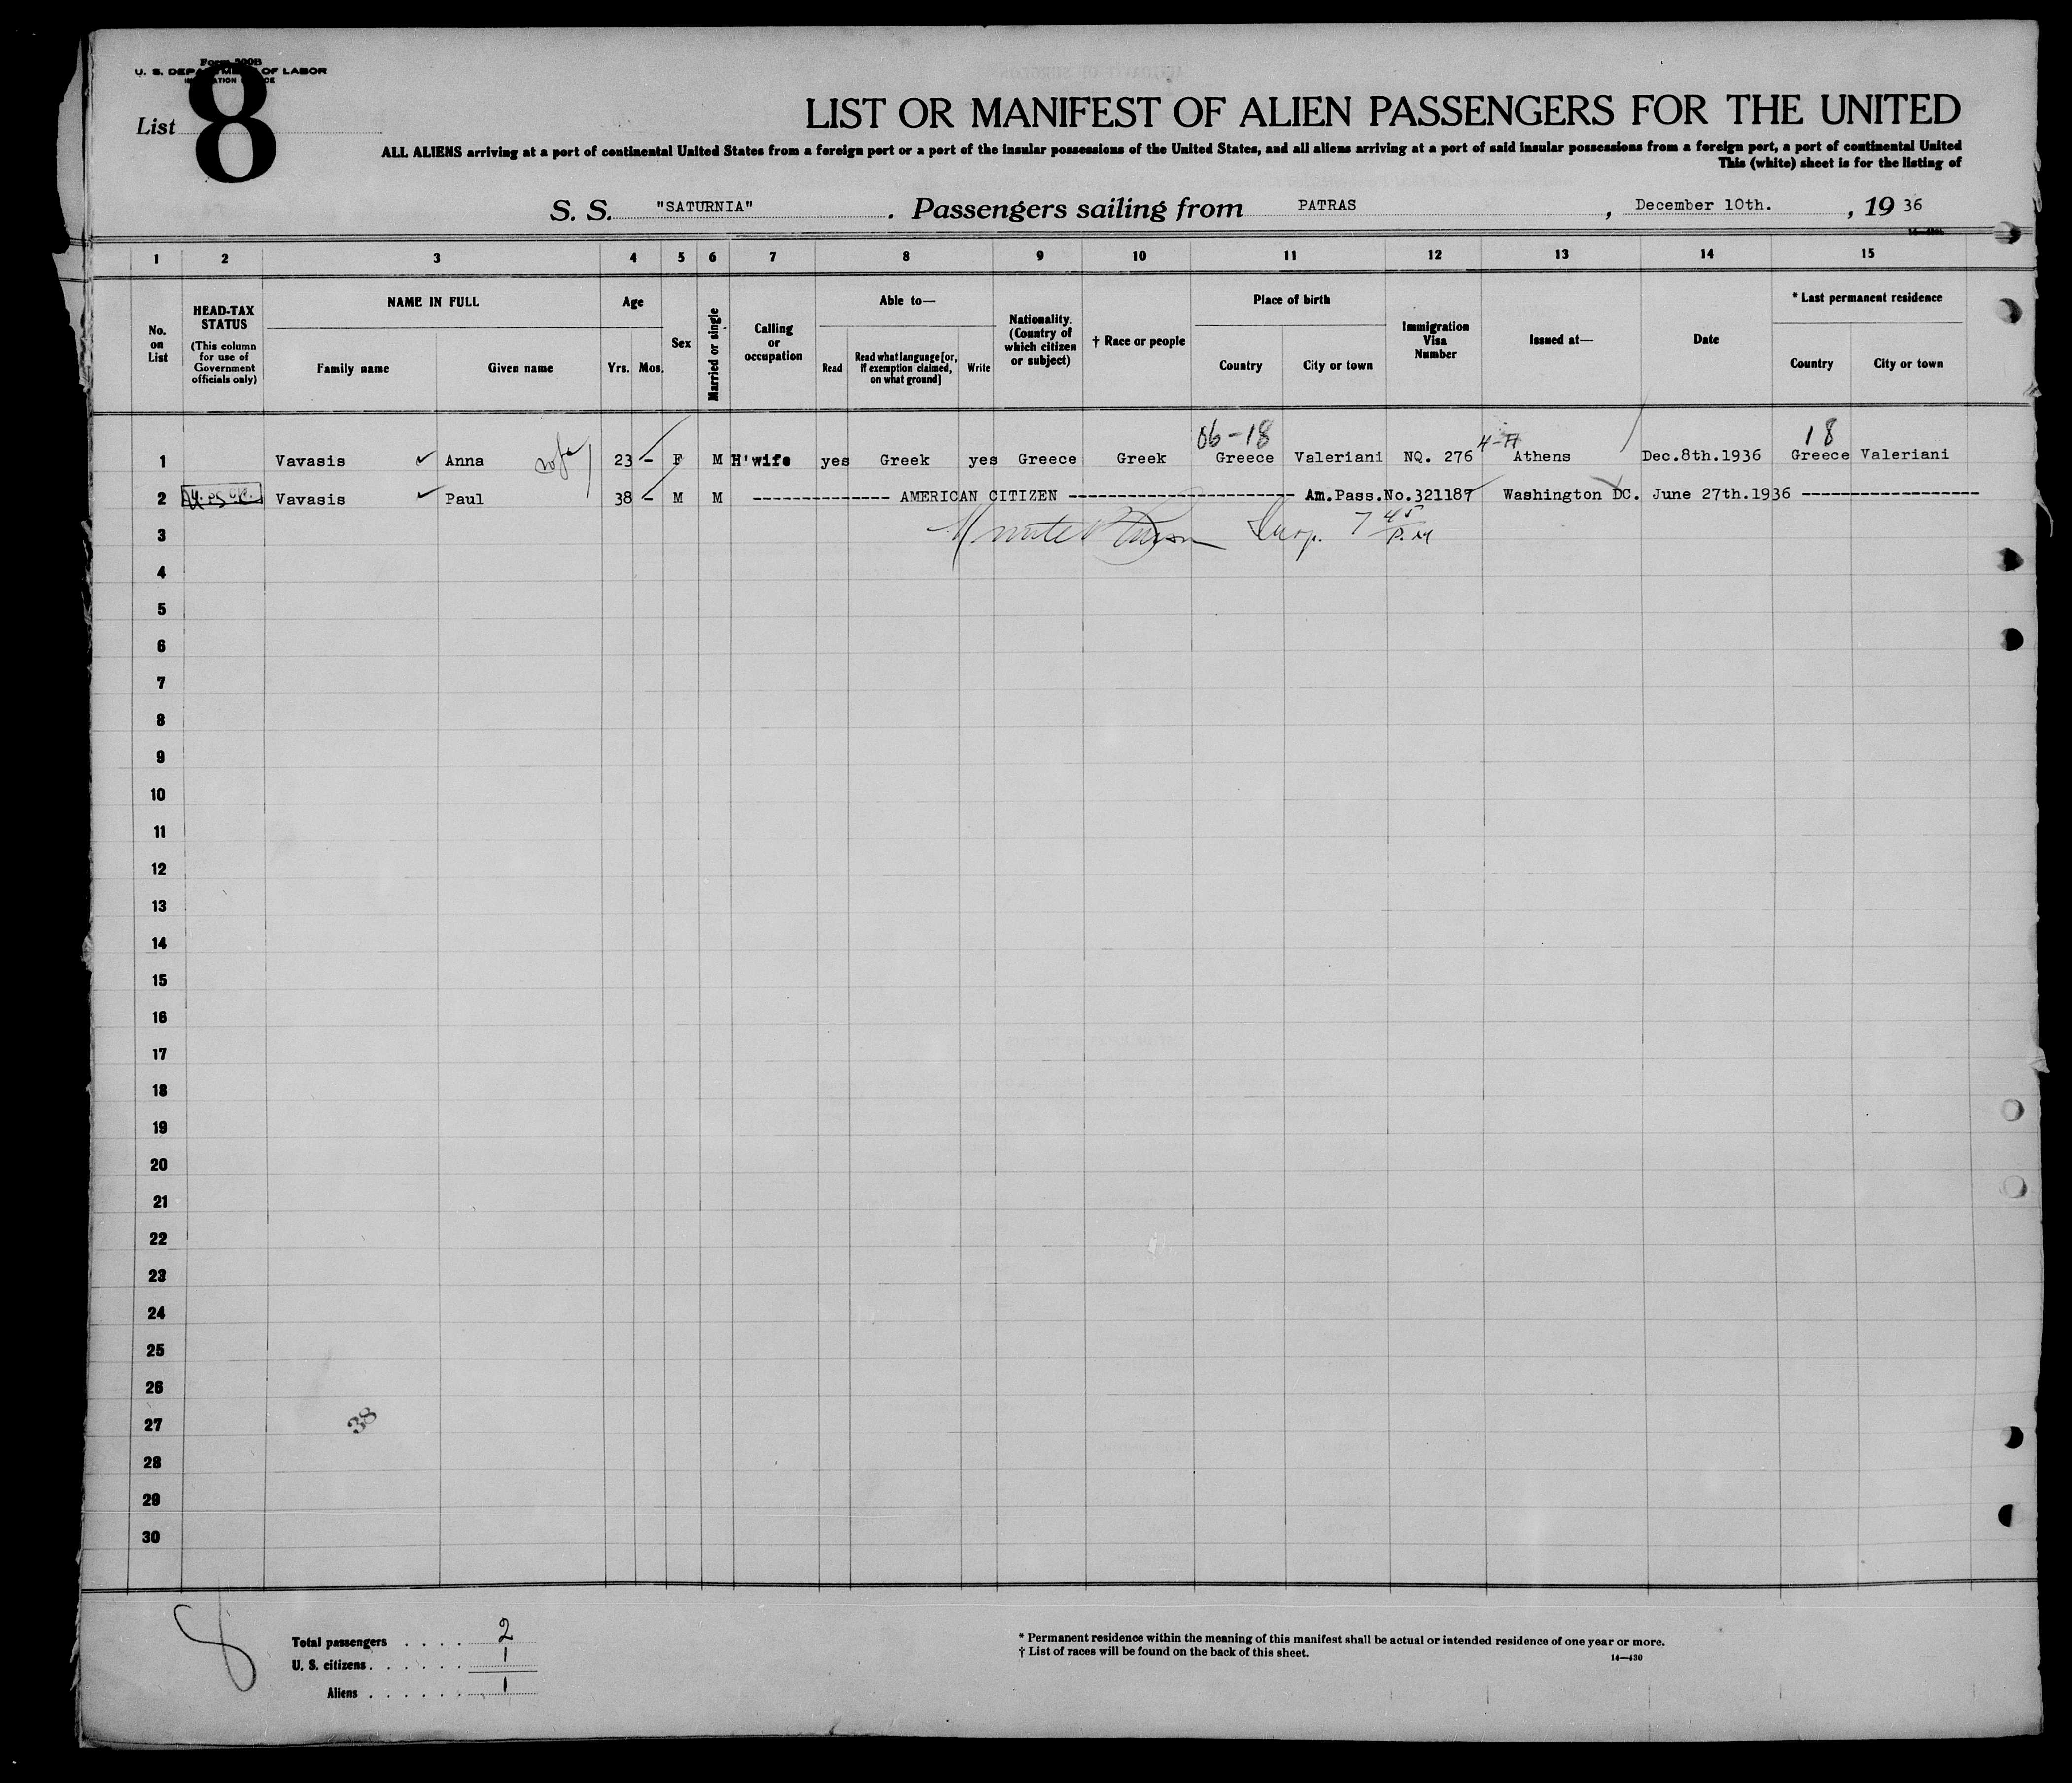 Form 500B
U. S. DEPARTMENT OF LABOR
List 8
LIST OR MANIFEST OF ALIEN PASSENGERS FOR THE UNITED
ALL ALIENS arriving at a port of continental United States from a foreign port or a port of the insular possessions of the United States, and all aliens arriving at a port of said insular possessions from a foreign port, a port of continental United
This (white) sheet is for the listing of
S. S. "SATURNIA" . Passengers sailing from PATRAS , December 10th. , 19 36
1 2 3 4 5 6 7 8 9 10 11 12 13 14 15
No. on List
HEAD-TAX STATUS (This column for use of Government officials only)
NAME IN FULL
Family name Given name
Age
Yrs. Mos.
Sex
Married or single
Calling or occupation
Able to—
Read Read what language [or, if exemption claimed, on what ground] Write
Nationality. (Country of which citizen or subject)
† Race or people
Place of birth
Country City or town
Immigration Visa Number
Issued at—
Date
* Last permanent residence
Country City or town
06-18 18
1 Vavasis Anna 23 - F M H'wife yes Greek yes Greece Greek Greece Valeriani NQ. 276 Athens Dec.8th.1936 Greece Valeriani
2 Vavasis Paul 38 - M M -------------- AMERICAN CITIZEN ----------------------- Am.Pass.No.321187 Washington DC. June 27th.1936 ------------------
3 Insp. 7 45 P.M
4
5
6
7
8
9
10
11
12
13
14
15
16
17
18
19
20
21
22
23
24
25
26
27 38
28
29
30
8
Total passengers . . . . 2
U. S. citizens . . . . . . 1
Aliens . . . . . . . 1
* Permanent residence within the meaning of this manifest shall be actual or intended residence of one year or more.
† List of races will be found on the back of this sheet.
14—430